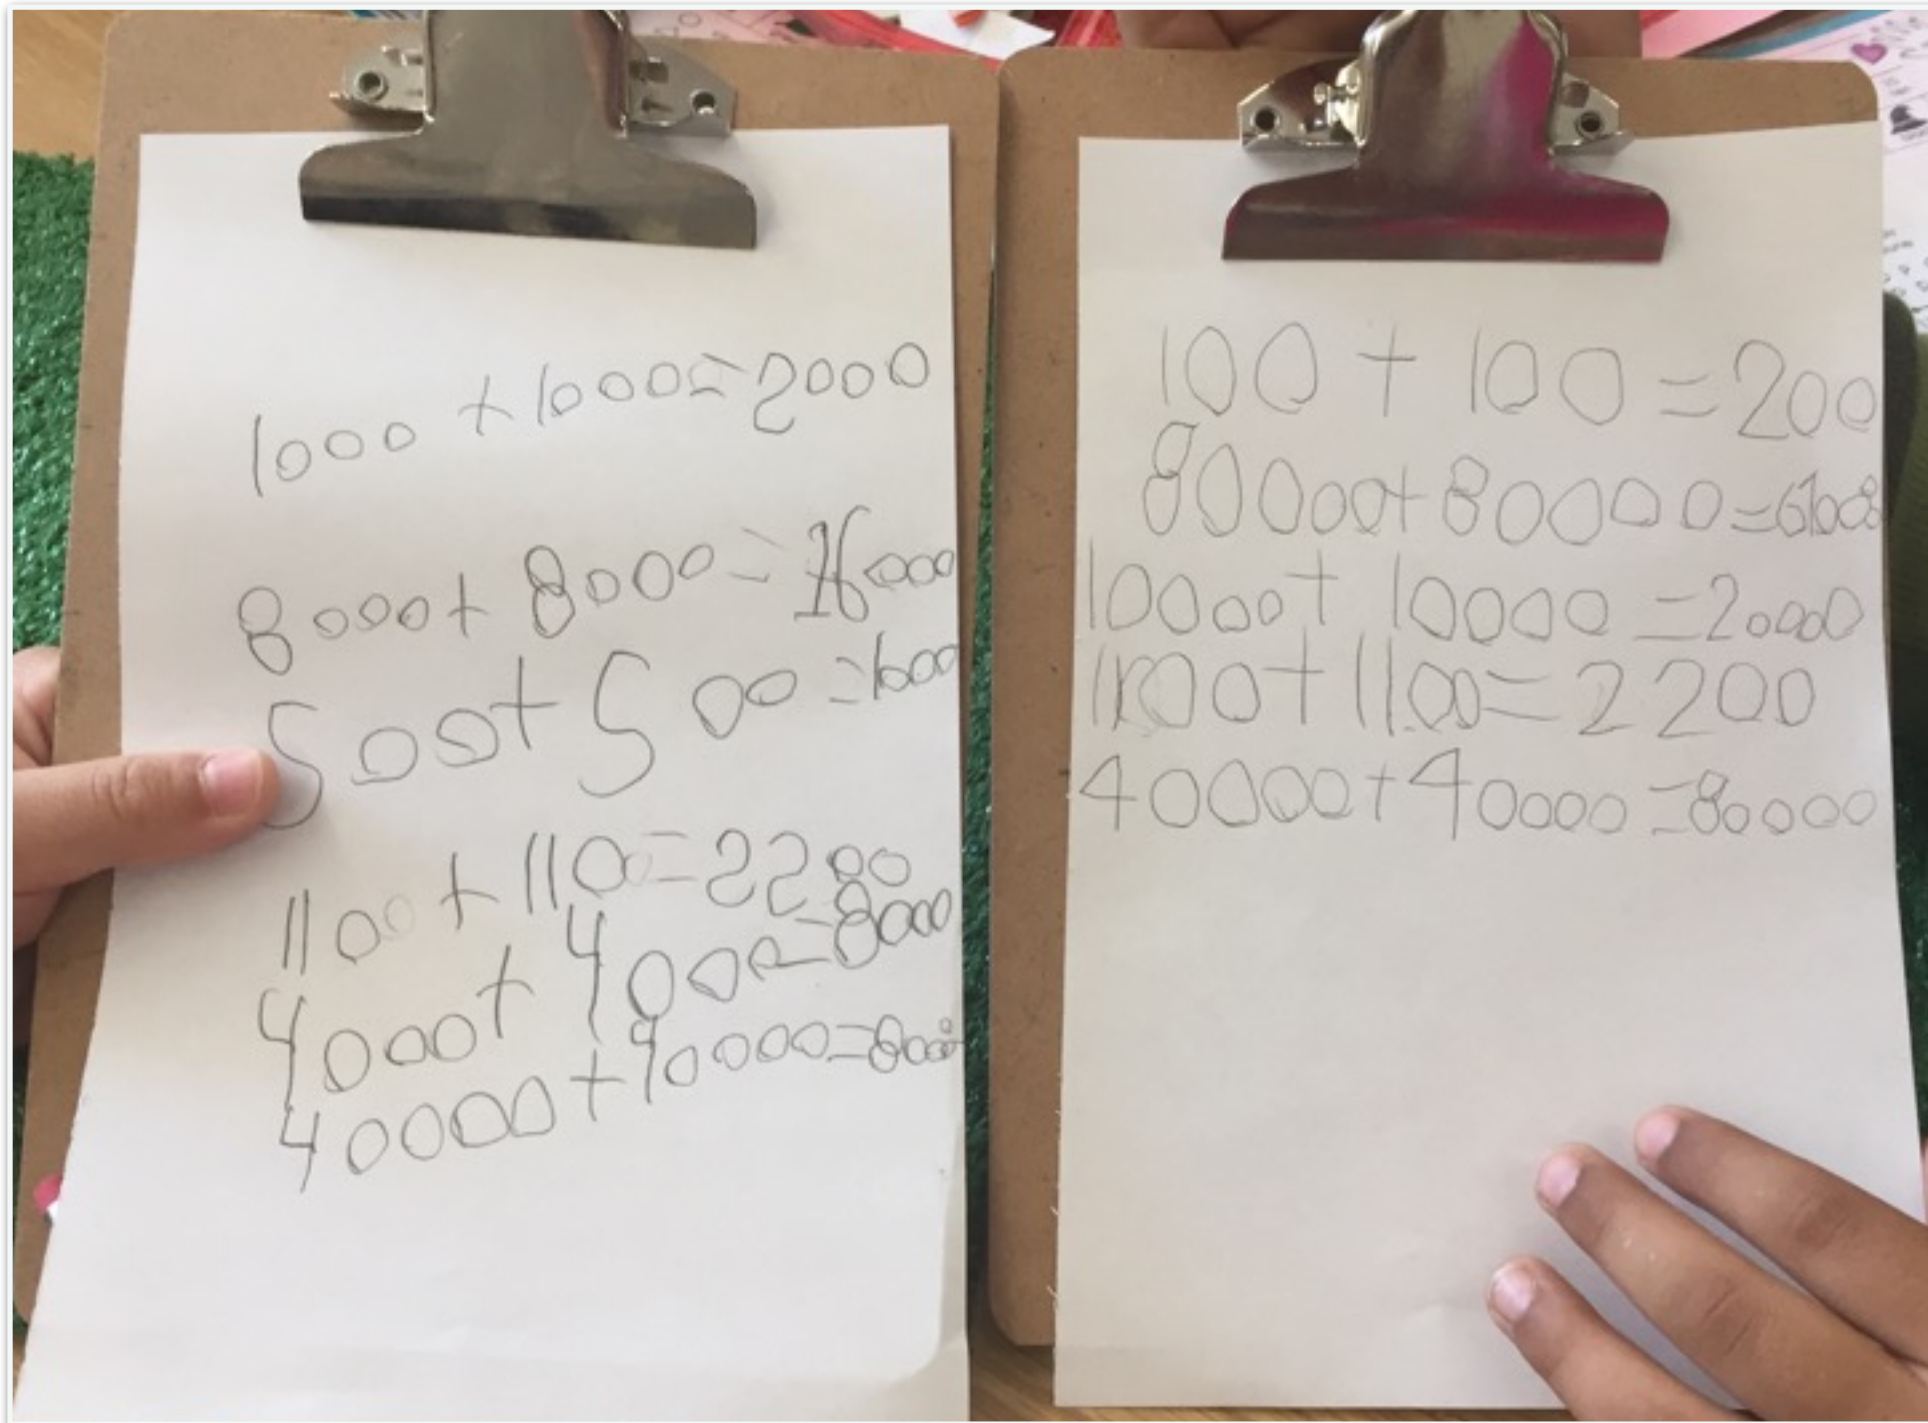 1000 + 1000 = 2000
8000 + 8000 = 16000
500 + 500 = 1000
1100 + 1100 = 2200
4000 + 4000 = 8000
40000 + 40000 =
100 + 100 = 200
80000 + 80000 =
10000 + 10000 = 20000
1100 + 1100 = 2200
40000 + 40000 = 80000